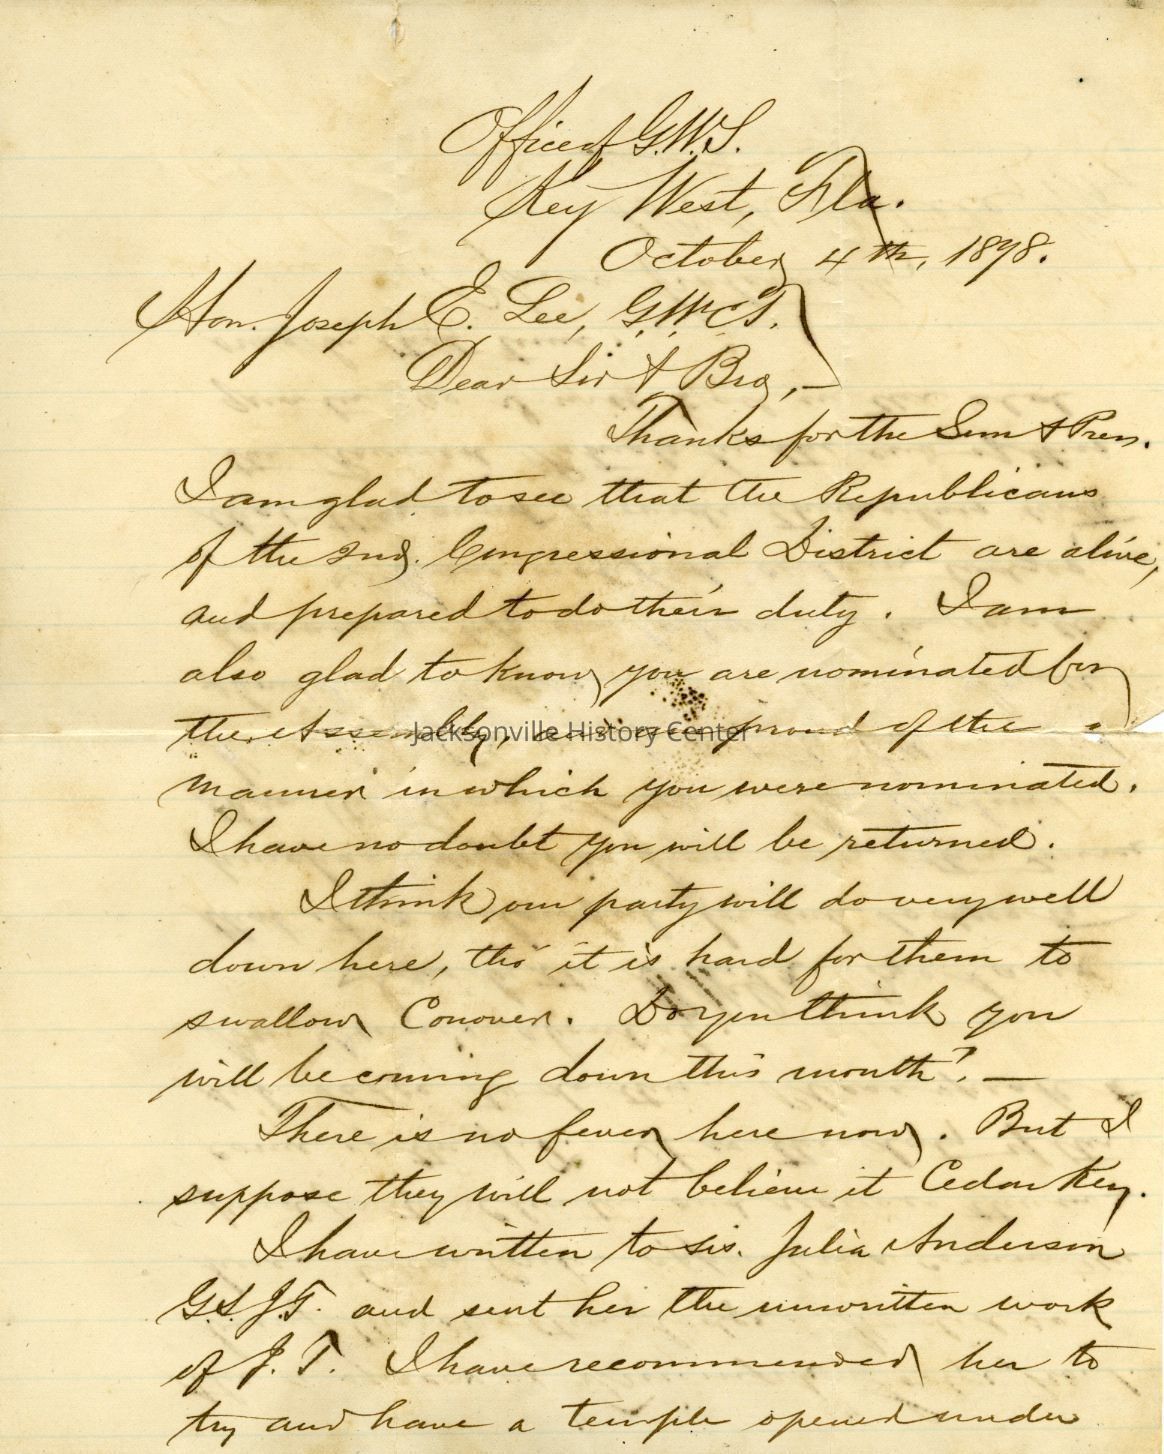 Office of G.W.S.
Key West, Fla.
October 4th, 1878.
Hon. Joseph E. Lee, G.W.C.T.
Dear Sir & Bro.,—
Thanks for the Sun & Press.
I am glad to see that the Republicans
of the 2nd. Congressional District are alive,
and prepared to do their duty. I am
also glad to know you are nominated for
the Assembly, proud of the
Jacksonville History Center
manner in which you were nominated.
I have no doubt you will be returned.
I think our party will do very well
down here, tho' it is hard for them to
swallow Conover. Do you think you
will be coming down this month? —
There is no fever here now. But I
suppose they will not believe it Cedar Key.
I have written to sis. Julia Anderson
G.S.J.T. and sent her the unwritten work
of J.T. I have recommended her to
try and have a temple opened under